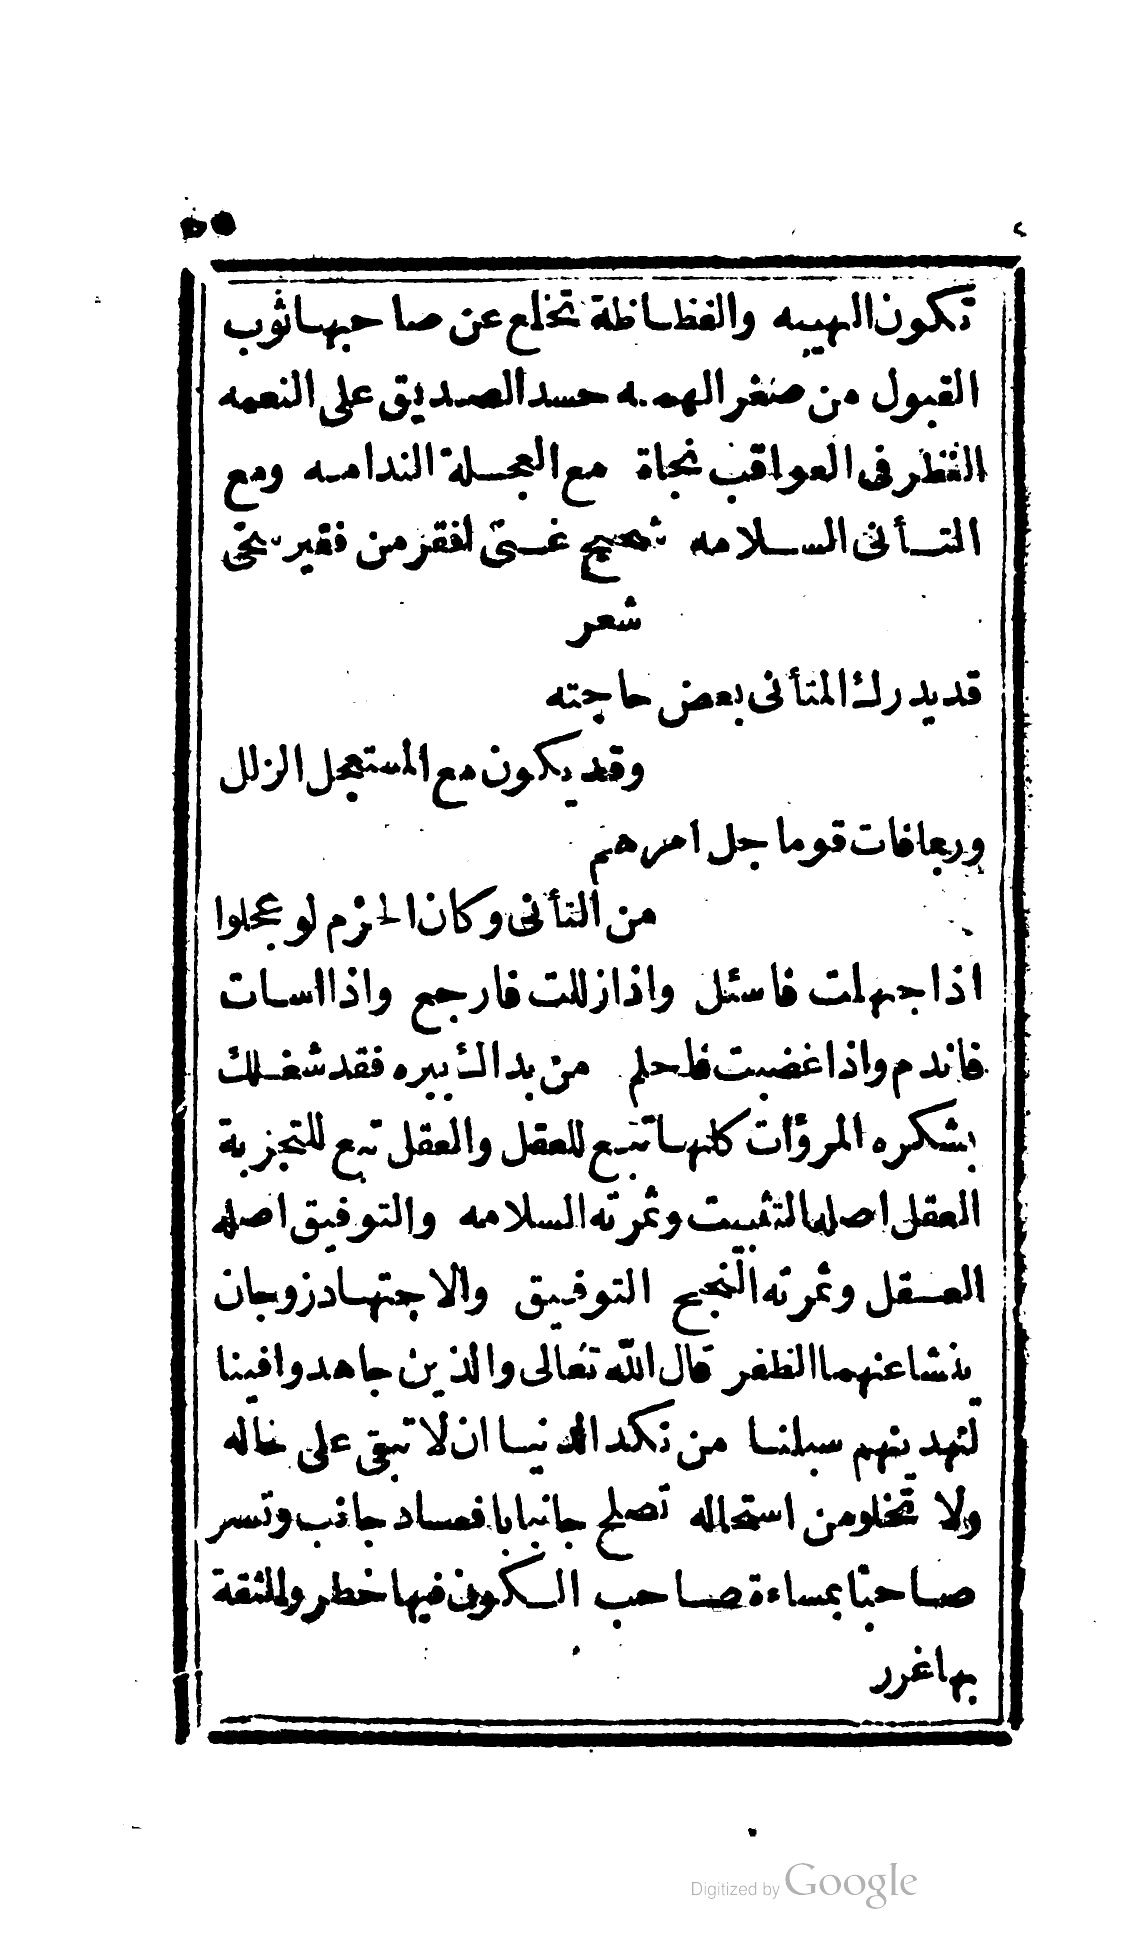 ٥٥
تكون الهيبه والفظاظة تخلع عن صاحبها ثوب
القبول من صغر الهمه حسد الصديق على النعمه
النظر فى العواقب نجاة مع العجلة الندامه ومع
التأنى السلامه شحيح غنى افقر من فقير سخى
شعر
قد يدرك المتأنى بعض حاجته
وقد يكون مع المستعجل الزلل
وربما فات قوما جل امرهم
من التأنى وكان الحزم لو عجلوا
اذا جهلت فاسئل واذا زللت فارجع واذا اسات
فاندم واذا غضبت فاحلم من بداك ببره فقد شغلك
بشكره المروآت كلها تتبع للعقل والعقل تبع للتجربة
العقل اصله التثبيت وثمرته السلامه والتوفيق اصله
العقل وثمرته النجيح التوفيق والاجتهاد زوجان
ينشا عنهما الظفر قال الله تعالى والذين جاهدوا فينا
لنهدينهم سبلنا من نكد الدنيا ان لا تبقى على حاله
ولا تخلو من استحاله تصلح جانبا بافساد جانب وتسر
صاحبا بمساءة صاحب السكون فيها خطر والثقة
بها غرر
Digitized by Google